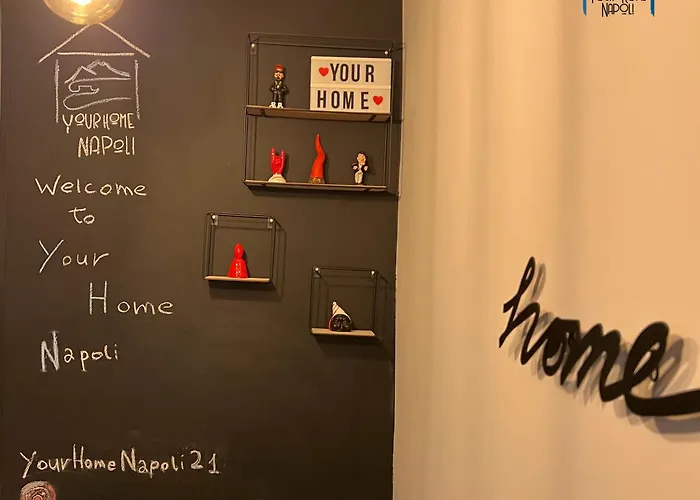 YOUR HOME
NAPOLI
Welcome
to
Your
Home
Napoli
YourHomeNapoli21
YOUR
HOME
home
YOUR HOME
NAPOLI